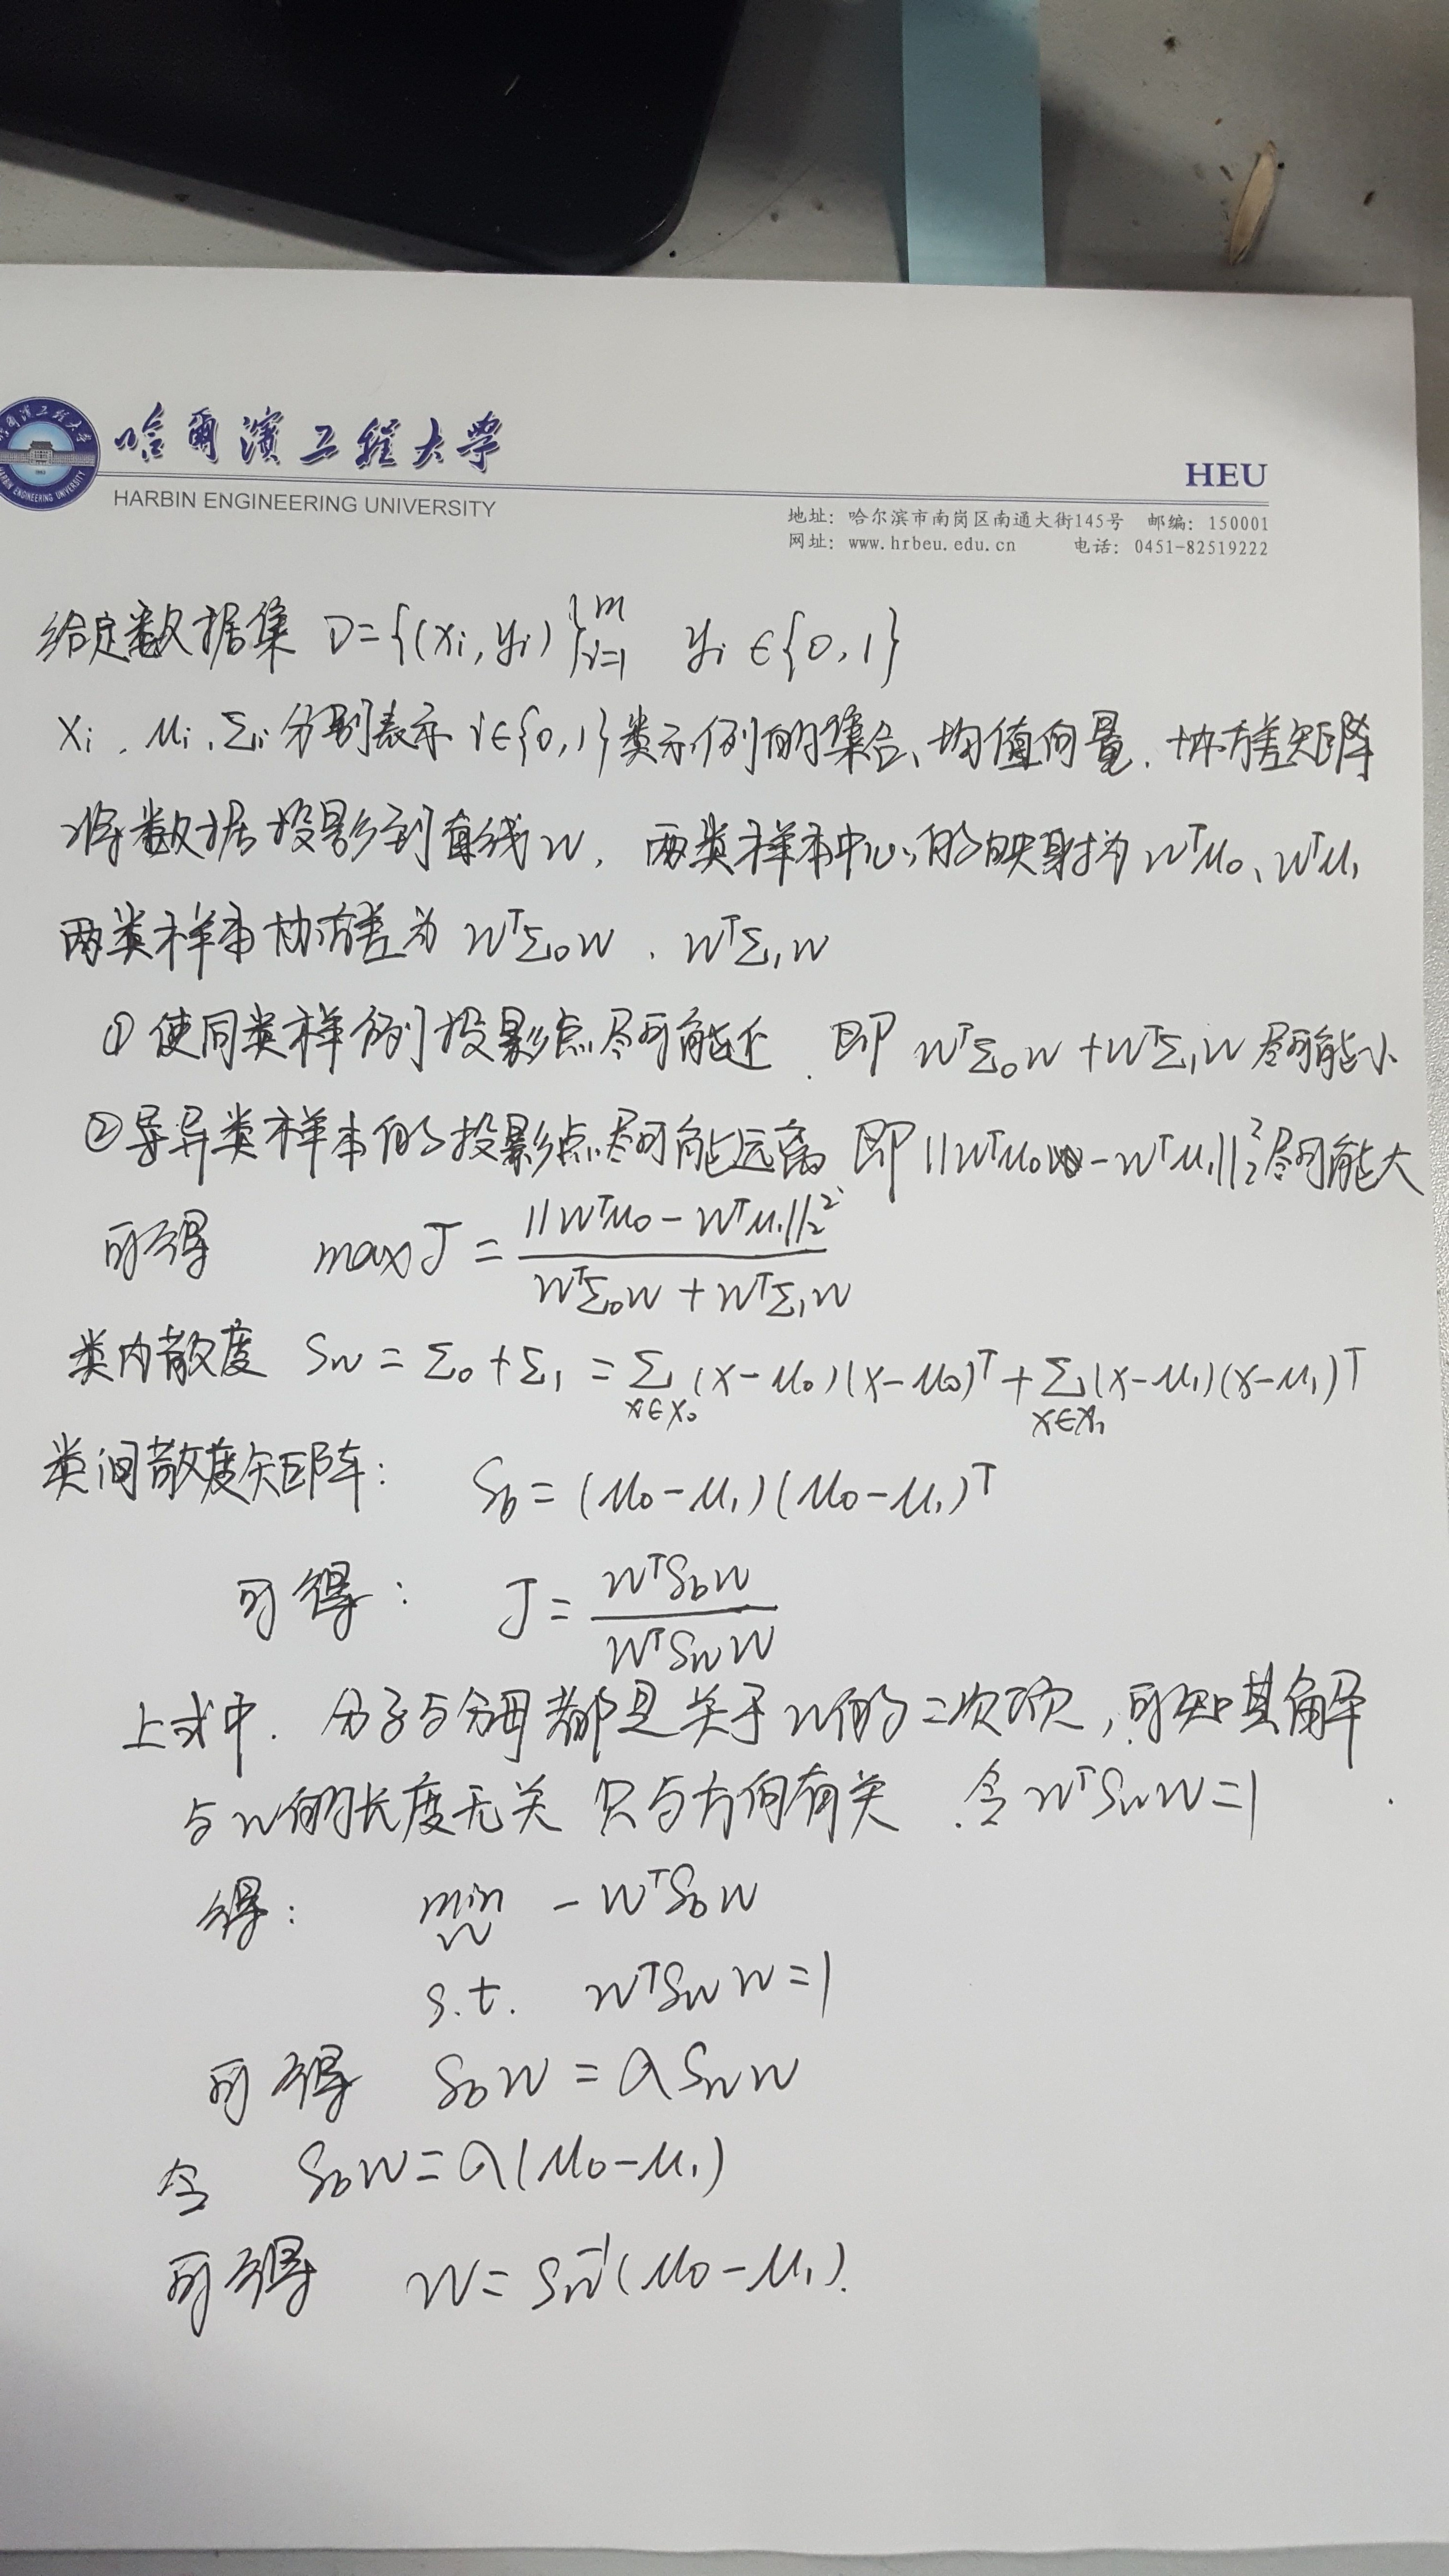 哈爾濱工程大学
HARBIN ENGINEERING UNIVERSITY
HEU
地址：哈尔滨市南岗区南通大街145号 邮编：150001
网址：www.hrbeu.edu.cn 电话：0451-82519222
给定数据集 D={(xi,yi)}ᵐᵢ₌₁ yi∈{0,1}
Xi、μi、Σi 分别表示 i∈{0,1}类示例的集合、均值向量、协方差矩阵
将数据投影到直线w，两类样本中心的映射为 wᵀμ₀、wᵀμ₁
两类样本协方差为 wᵀΣ₀w、wᵀΣ₁w
①使同类样例投影点尽可能近，即 wᵀΣ₀w+wᵀΣ₁w 尽可能小
②异类样本的投影点尽可能远离 即||wᵀμ₀-wᵀμ₁||₂²尽可能大
可得 max J = ||wᵀμ₀-wᵀμ₁||₂² / (wᵀΣ₀w+wᵀΣ₁w)
类内散度 Sw = Σ₀+Σ₁ = Σ_{x∈X₀}(x-μ₀)(x-μ₀)ᵀ+Σ_{x∈X₁}(x-μ₁)(x-μ₁)ᵀ
类间散度矩阵： Sb=(μ₀-μ₁)(μ₀-μ₁)ᵀ
可得： J = wᵀSbw / wᵀSww
上式中，分子与分母都是关于w的二次项，可知其解
与w的长度无关 只与方向有关，令wᵀSww=1
得： min_w -wᵀSbw
s.t. wᵀSww=1
可得 Sbw=λSww
令 Sbw=λ(μ₀-μ₁)
可得 w=Sw⁻¹(μ₀-μ₁).